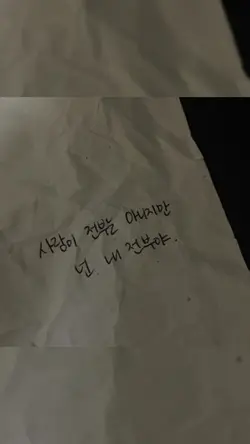 사랑이 아니지만
넌. 내 전부야.